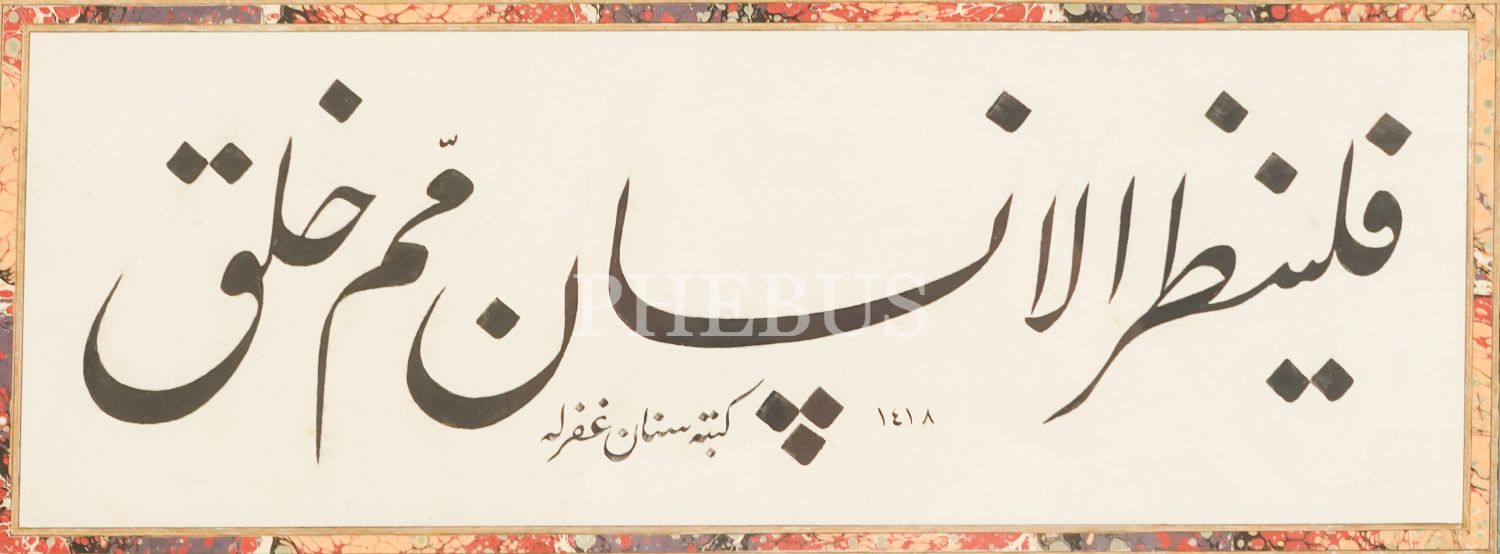 فلينظر الانسان ممّ خلق
كتبه سنان غفرله ١٤١٨
PHEBUS